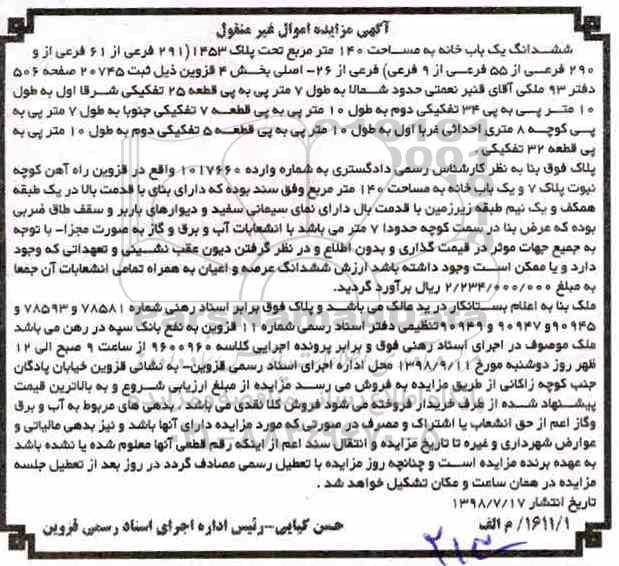 آگهی مزایده اموال غیر منقول
ششدانگ یک باب خانه به مساحت ۱۴۰ متر مربع تحت پلاک ۱۴۵۳(۲۹۱ فرعی از ۶۱ فرعی از و
۲۹۰ فرعی از ۵۵ فرعی از ۹ فرعی) فرعی از ۲۶- اصلی بخش ۴ قزوین ذیل ثبت ۲۰۷۴۵ صفحه ۵۰۶
دفتر ۹۳ ملکی آقای قنبر نعمتی حدود شمالا به طول ۷ متر پی به پی قطعه ۲۵ تفکیکی شرقا اول به طول
۱۰ متر پی به پی ۳۴ تفکیکی دوم به طول ۱۰ متر پی به پی قطعه ۷ تفکیکی جنوبا به طول ۷ متر پی به
پی کوچه ۸ متری احداثی غربا اول به طول ۱۰ متر پی به پی قطعه ۵ تفکیکی دوم به طول ۱۰ متر پی به
پی قطعه ۳۲ تفکیکی.
پلاک فوق بنا به نظر کارشناس رسمی دادگستری به شماره وارده ۱۰۱۷۶۶۰ واقع در قزوین راه آهن کوچه
نبوت پلاک ۷ و یک باب خانه به مساحت ۱۴۰ متر مربع وفق سند بوده که دارای بنای با قدمت بالا در یک طبقه
همکف و یک نیم طبقه زیرزمین با قدمت بال دارای نمای سیمانی سفید و دیوارهای باربر و سقف طاق ضربی
بوده که عرض بنا در سمت کوچه حدودا ۷ متر می باشد با انشعابات آب و برق و گاز به صورت مجزا- با توجه
به جمیع جهات موثر در قیمت گذاری و بدون اطلاع و در نظر گرفتن دیون عقب نشینی و تعهداتی که وجود
دارد و یا ممکن است وجود داشته باشد ارزش ششدانگ عرصه و اعیان به همراه تمامی انشعابات آن جمعا
به مبلغ ۲/۲۳۴/۰۰۰/۰۰۰ ریال برآورد گردید.
ملک بنا به اعلام بستانکار در ید مالک می باشد و پلاک فوق برابر اسناد رهنی شماره ۷۸۵۸۱ و ۷۸۵۹۳ و
۹۰۹۴۵و ۹۰۹۴۷ و ۹۰۹۴۹تنظیمی دفتر اسناد رسمی شماره ۱۱ قزوین به نفع بانک سپه در رهن می باشد
ملک موصوف در اجرای اسناد رهنی فوق و برابر پرونده اجرایی کلاسه ۹۶۰۰۹۶۰ از ساعت ۹ صبح الی ۱۲
ظهر روز دوشنبه مورخ ۱۳۹۸/۹/۱۱ محل اداره اجرای اسناد رسمی قزوین- به نشانی قزوین خیابان پادگان
جنب کوچه زاکانی از طریق مزایده به فروش می رسد مزایده از مبلغ ارزیابی شروع و به بالاترین قیمت
پیشنهاد شده از طرف خریدار فروخته می شود فروش کلا نقدی می باشد. بدهی های مربوط به آب و برق
وگاز اعم از حق انشعاب یا اشتراک و مصرف در صورتی که مورد مزایده دارای آنها باشد و نیز بدهی مالیاتی و
عوارض شهرداری و غیره تا تاریخ مزایده و انتقال سند اعم از اینکه رقم قطعی آنها معلوم شده یا نشده باشد
به عهده برنده مزایده است و چنانچه روز مزایده با تعطیل رسمی مصادف گردد در روز بعد از تعطیل جلسه
مزایده در همان ساعت و مکان تشکیل خواهد شد.
تاریخ انتشار ۱۳۹۸/۷/۱۷
۱۶۱۱/۱/ م الف
حسن کیایی-رئیس اداره اجرای اسناد رسمی قزوین